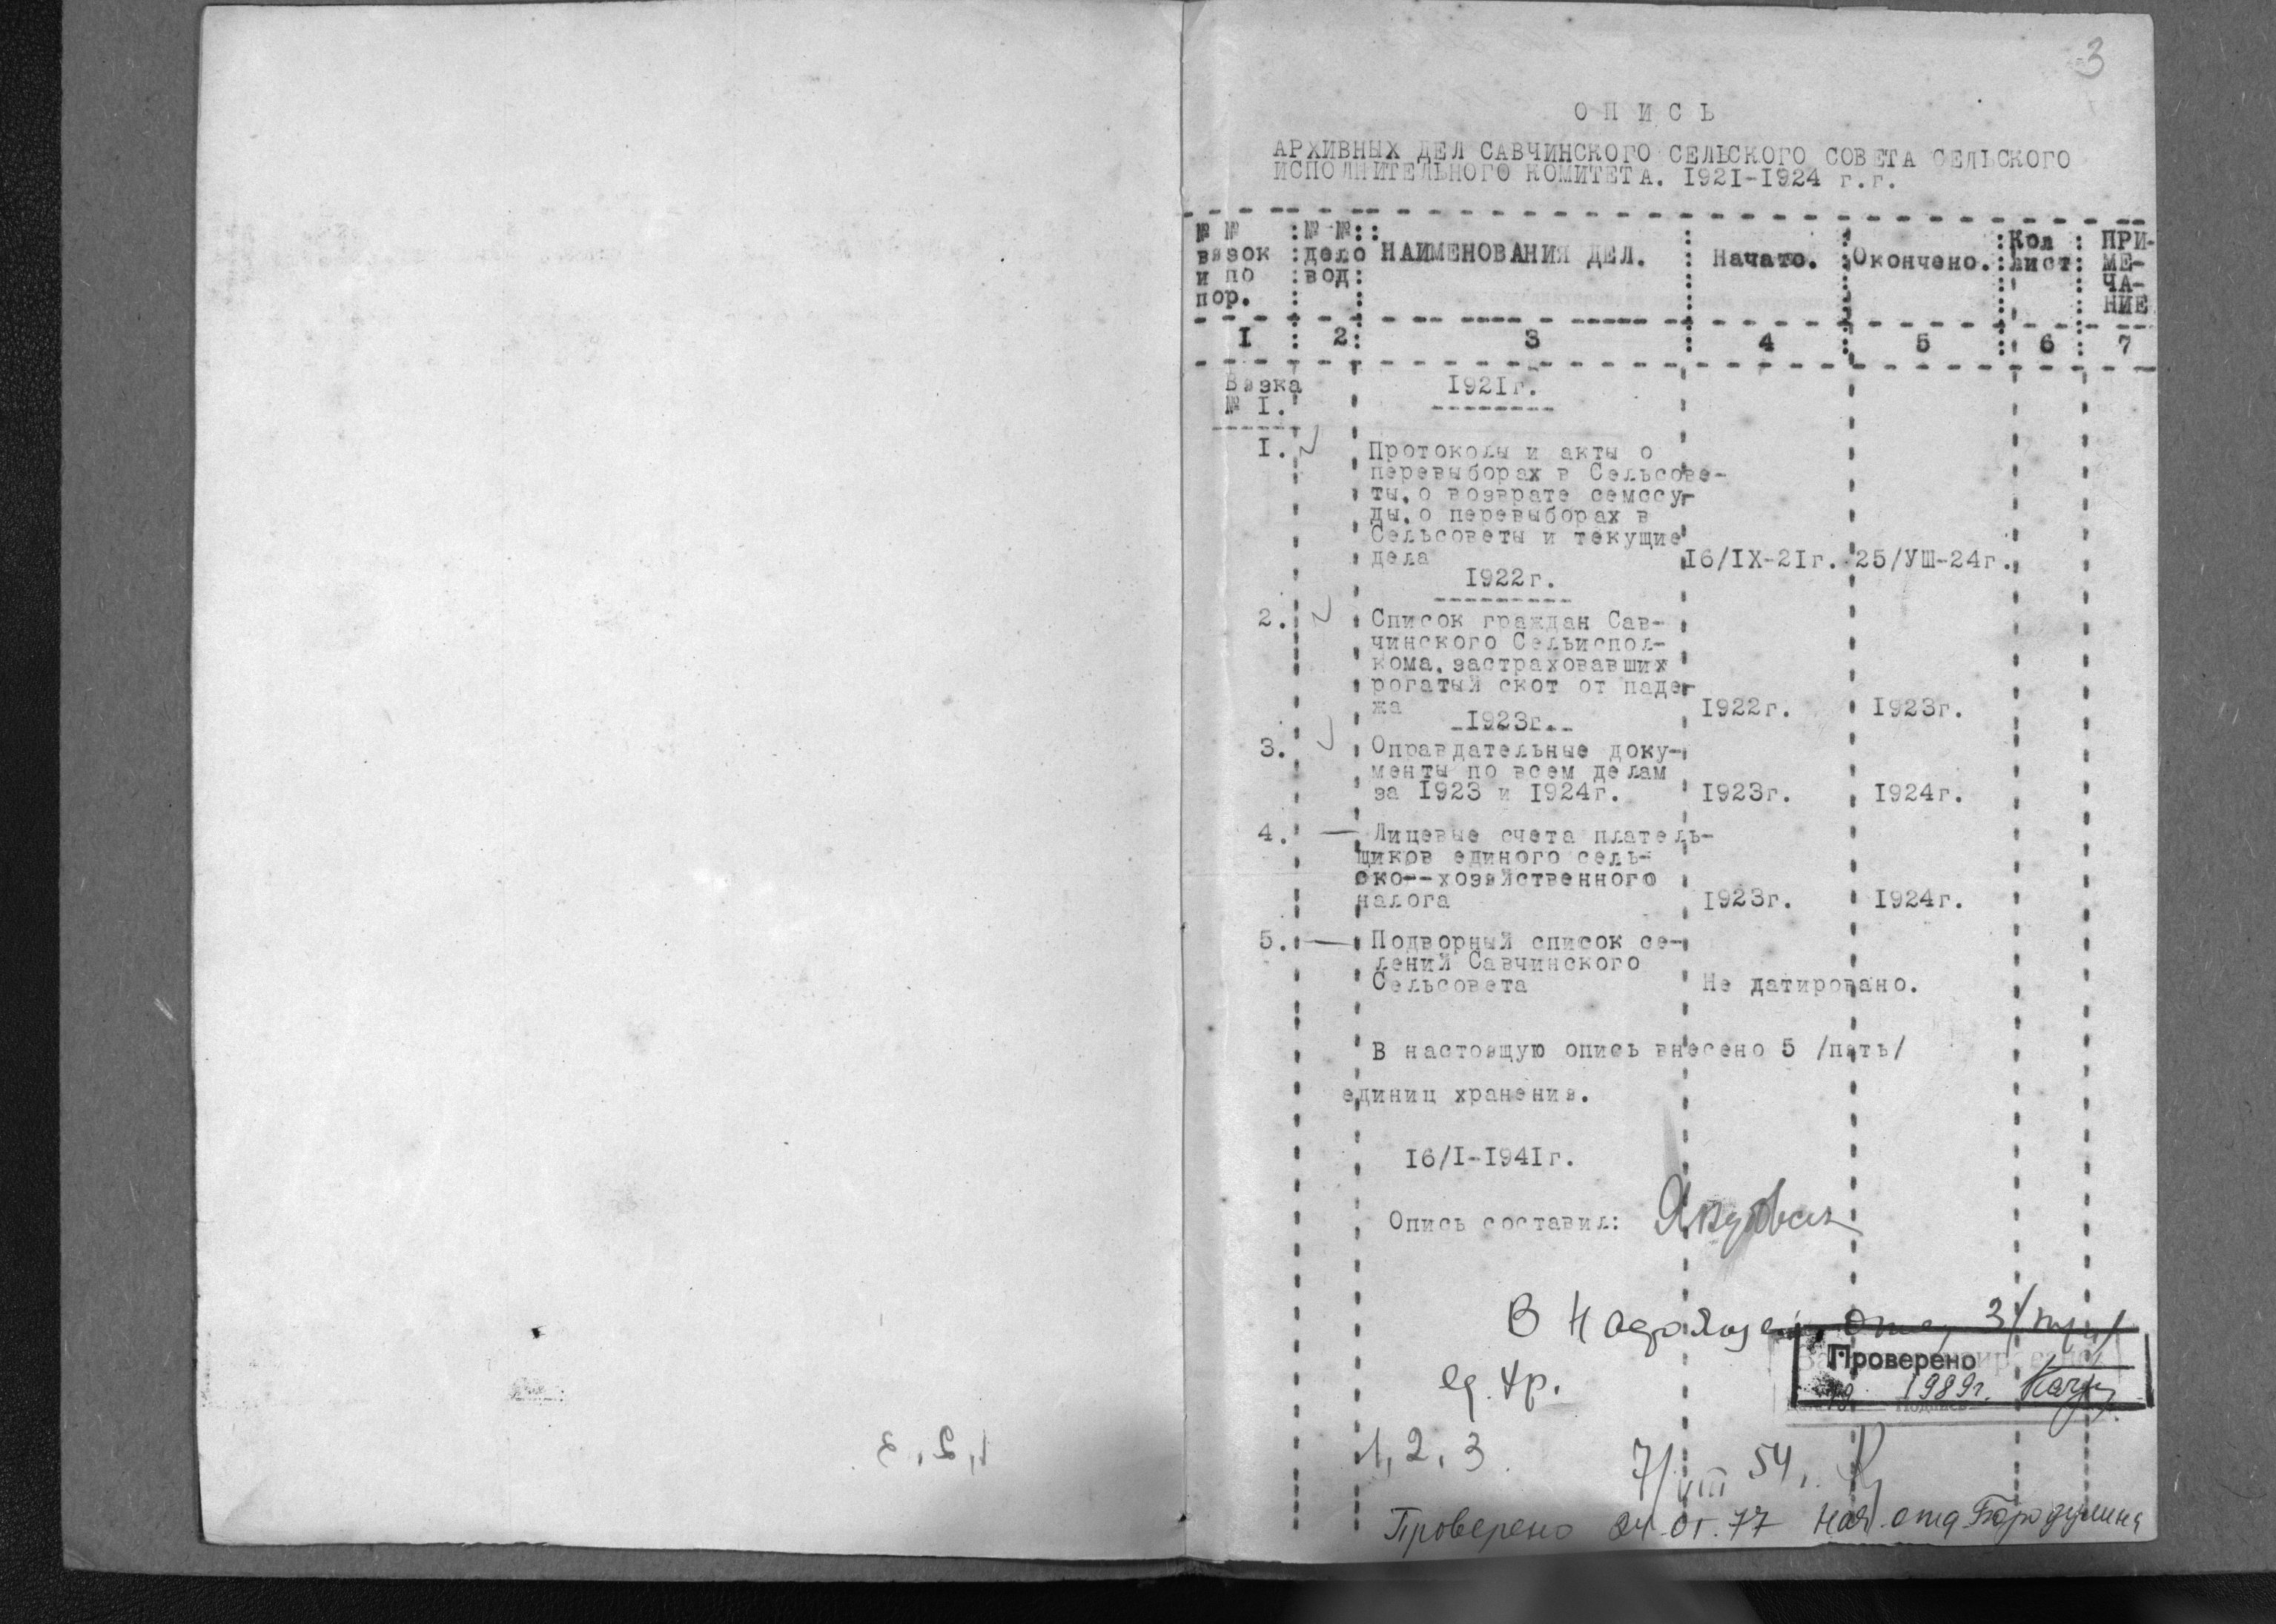 3
ОПИСЬ
АРХИВНЫХ ДЕЛ САВЧИНСКОГО СЕЛЬСКОГО СОВЕТА СЕЛЬСКОГО
ИСПОЛНИТЕЛЬНОГО КОМИТЕТА. 1921-1924 г.г.
№ № вязок и по пор. : № № дело вод : НАИМЕНОВАНИЯ ДЕЛ. : Начато. : Окончено. : Кол лист : ПРИ-МЕ-ЧА-НИЕ
1 : 2 : 3 : 4 : 5 : 6 : 7
Вязка 1921г.
№ 1.
1. Протоколы и акты о
перевыборах в Сельсове-
ты, о возврате семссу-
ды, о перевыборах в
Сельсоветы и текущие
дела 16/IX-21г. 25/УШ-24г.
1922г.
2. Список граждан Сав-
чинского Сельиспол-
кома, застраховавших
рогатый скот от паде-
жа 1922г. 1923г.
1923г.
3. Оправдательные доку-
менты по всем делам
за 1923 и 1924г. 1923г. 1924г.
4. — Лицевые счета платель-
щиков единого сель-
ско--хозяйственного
налога 1923г. 1924г.
5. — Подворный список се-
лений Савчинского
Сельсовета Не датировано.
В настоящую опись внесено 5 /пять/
единиц хранения.
16/I-1941г.
Опись составил:
В 3/три/
Проверено
1989г.
ед. хр.
1, 2, 3
7/VIII 54.
Проверено 24.01.77 Нач. отд Бородулина
1, 2, 3